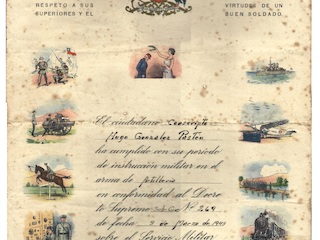 RESPETO A SUS
SUPERIORES Y ÉL
VIRTUDES DE UN
BUEN SOLDADO.
El ciudadano Conscripto
Hugo González Pastén
ha cumplido con su período
de instrucción militar en el
arma de
en conformidad al Decre
to Supremo N.º 264
de fecha de Marzo de 19
sobre el Servicio Militar